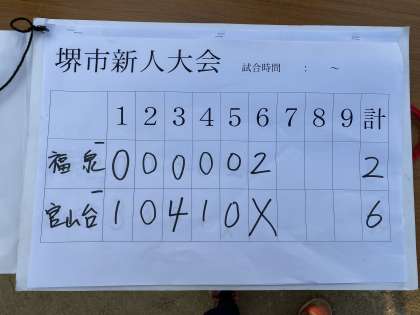 堺市新人大会 試合時間 : ～
1 2 3 4 5 6 7 8 9 計
福泉 0 0 0 0 0 2 2
宮山台 1 0 4 1 0 X 6